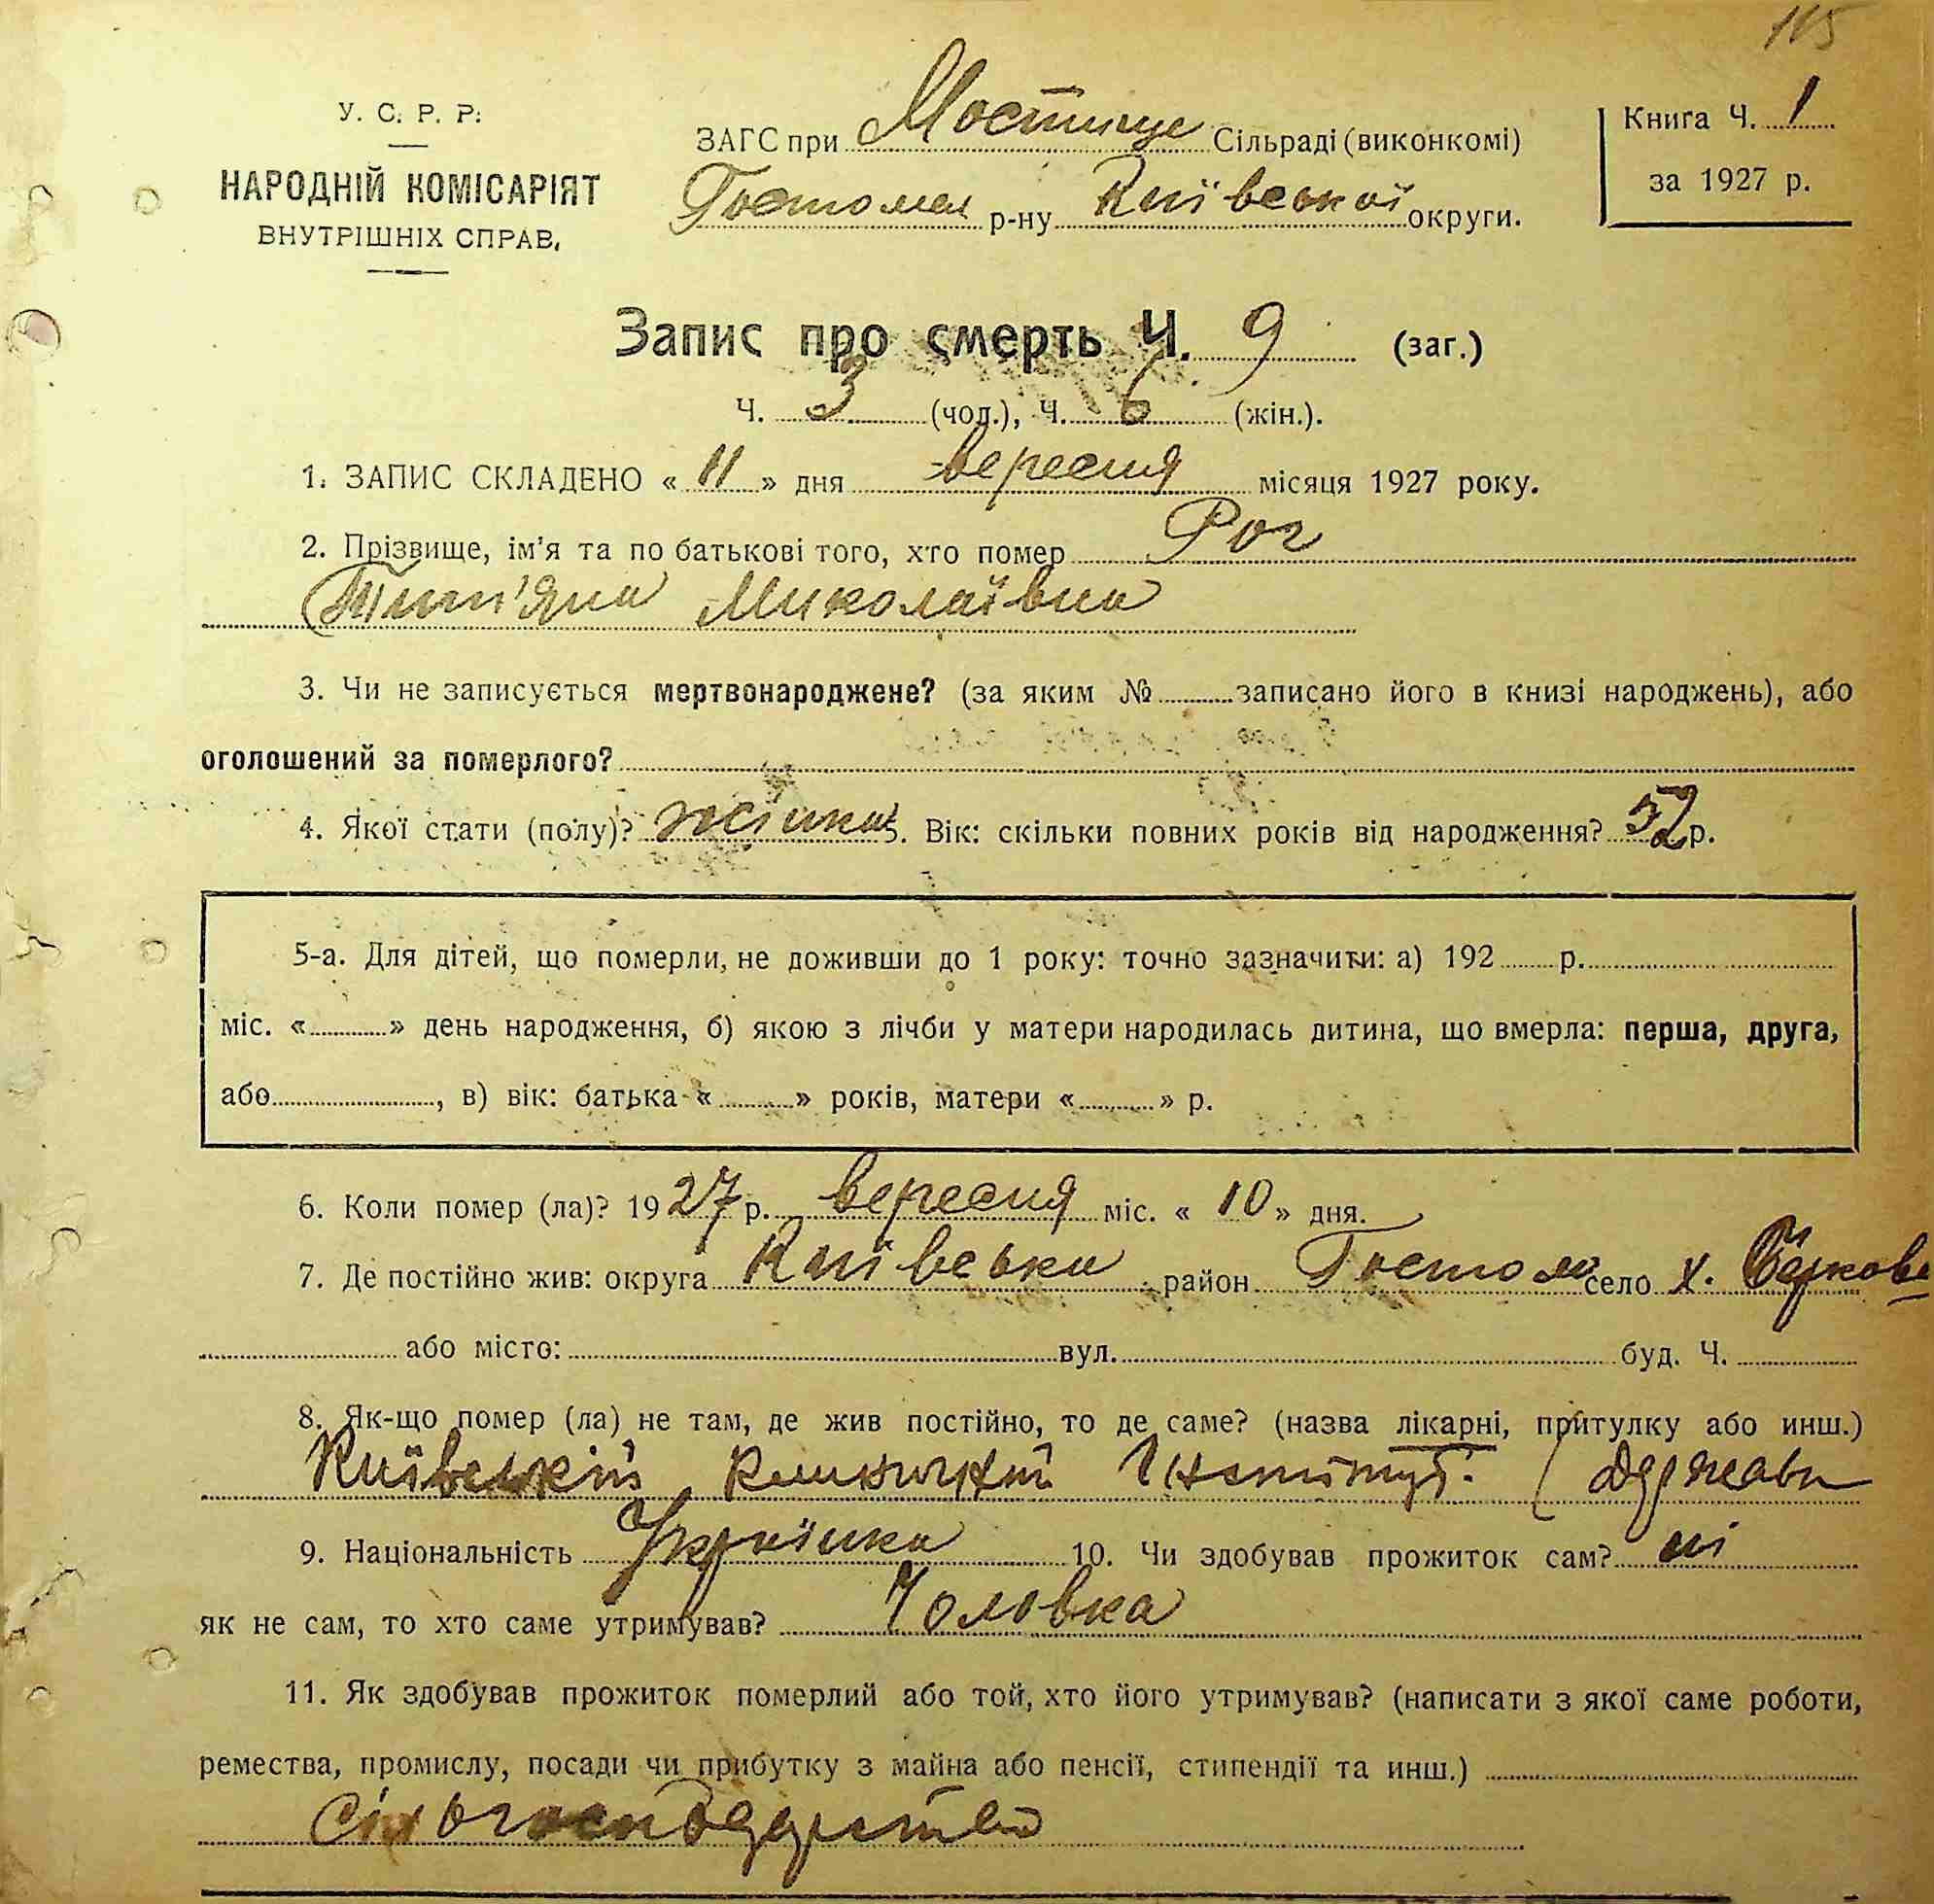 115
У. С. Р. Р.
НАРОДНІЙ КОМІСАРІЯТ
ВНУТРІШНІХ СПРАВ.
ЗАГС при Мостище Сільраді (виконкомі)
Гостомел р-ну Київської округи.
Книга Ч. 1
за 1927 р.
Запис про смерть Ч. 9 (заг.)
Ч. 3 (чол.), Ч. 6 (жін.).
1. ЗАПИС СКЛАДЕНО « 11 » дня вересня місяця 1927 року.
2. Прізвище, ім'я та по батькові того, хто помер Рог
Тит'яна Миколаївна
3. Чи не записується мертвонароджене? (за яким № записано його в книзі народжень), або
оголошений за померлого?
4. Якої стати (полу)? жінка 5. Вік: скільки повних років від народження? 52 р.
5-а. Для дітей, що померли, не доживши до 1 року: точно зазначити: а) 192 р.
міс. « » день народження, б) якою з лічби у матери народилась дитина, що вмерла: перша, друга,
або , в) вік: батька « » років, матери « » р.
6. Коли помер (ла)? 1927 р. вересня міс. « 10 » дня.
7. Де постійно жив: округа Київська район Гостом село х.
або місто: вул. буд. Ч.
8. Як-що помер (ла) не там, де жив постійно, то де саме? (назва лікарні, притулку або инш.)
Київський Клинічний Інститут. (Держави
9. Національність Українка 10. Чи здобував прожиток сам? ні
як не сам, то хто саме утримував? Чоловка
11. Як здобував прожиток померлий або той, хто його утримував? (написати з якої саме роботи,
ремества, промислу, посади чи прибутку з майна або пенсії, стипендії та инш.)